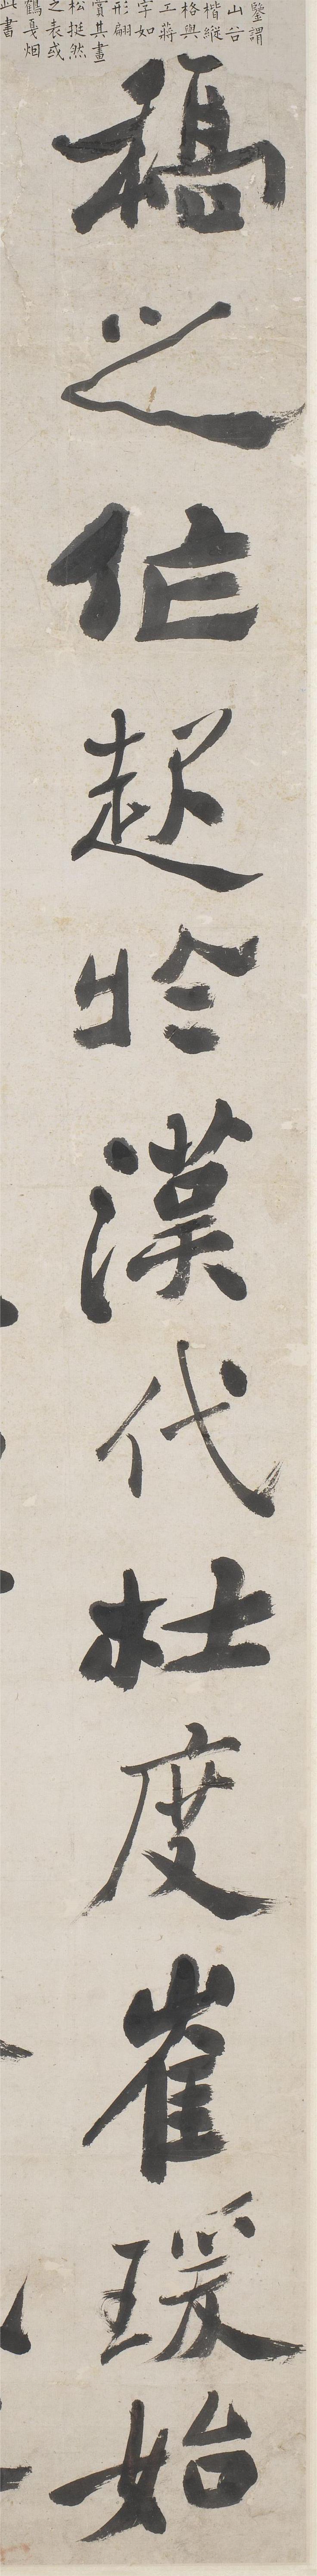 鑒謂
山谷
楷縱
格與
工蔣
字如
形翩
賞其畫
松挺然
之表或
鶴戛烟
此書
稿之作起於漢代杜度崔瑗始